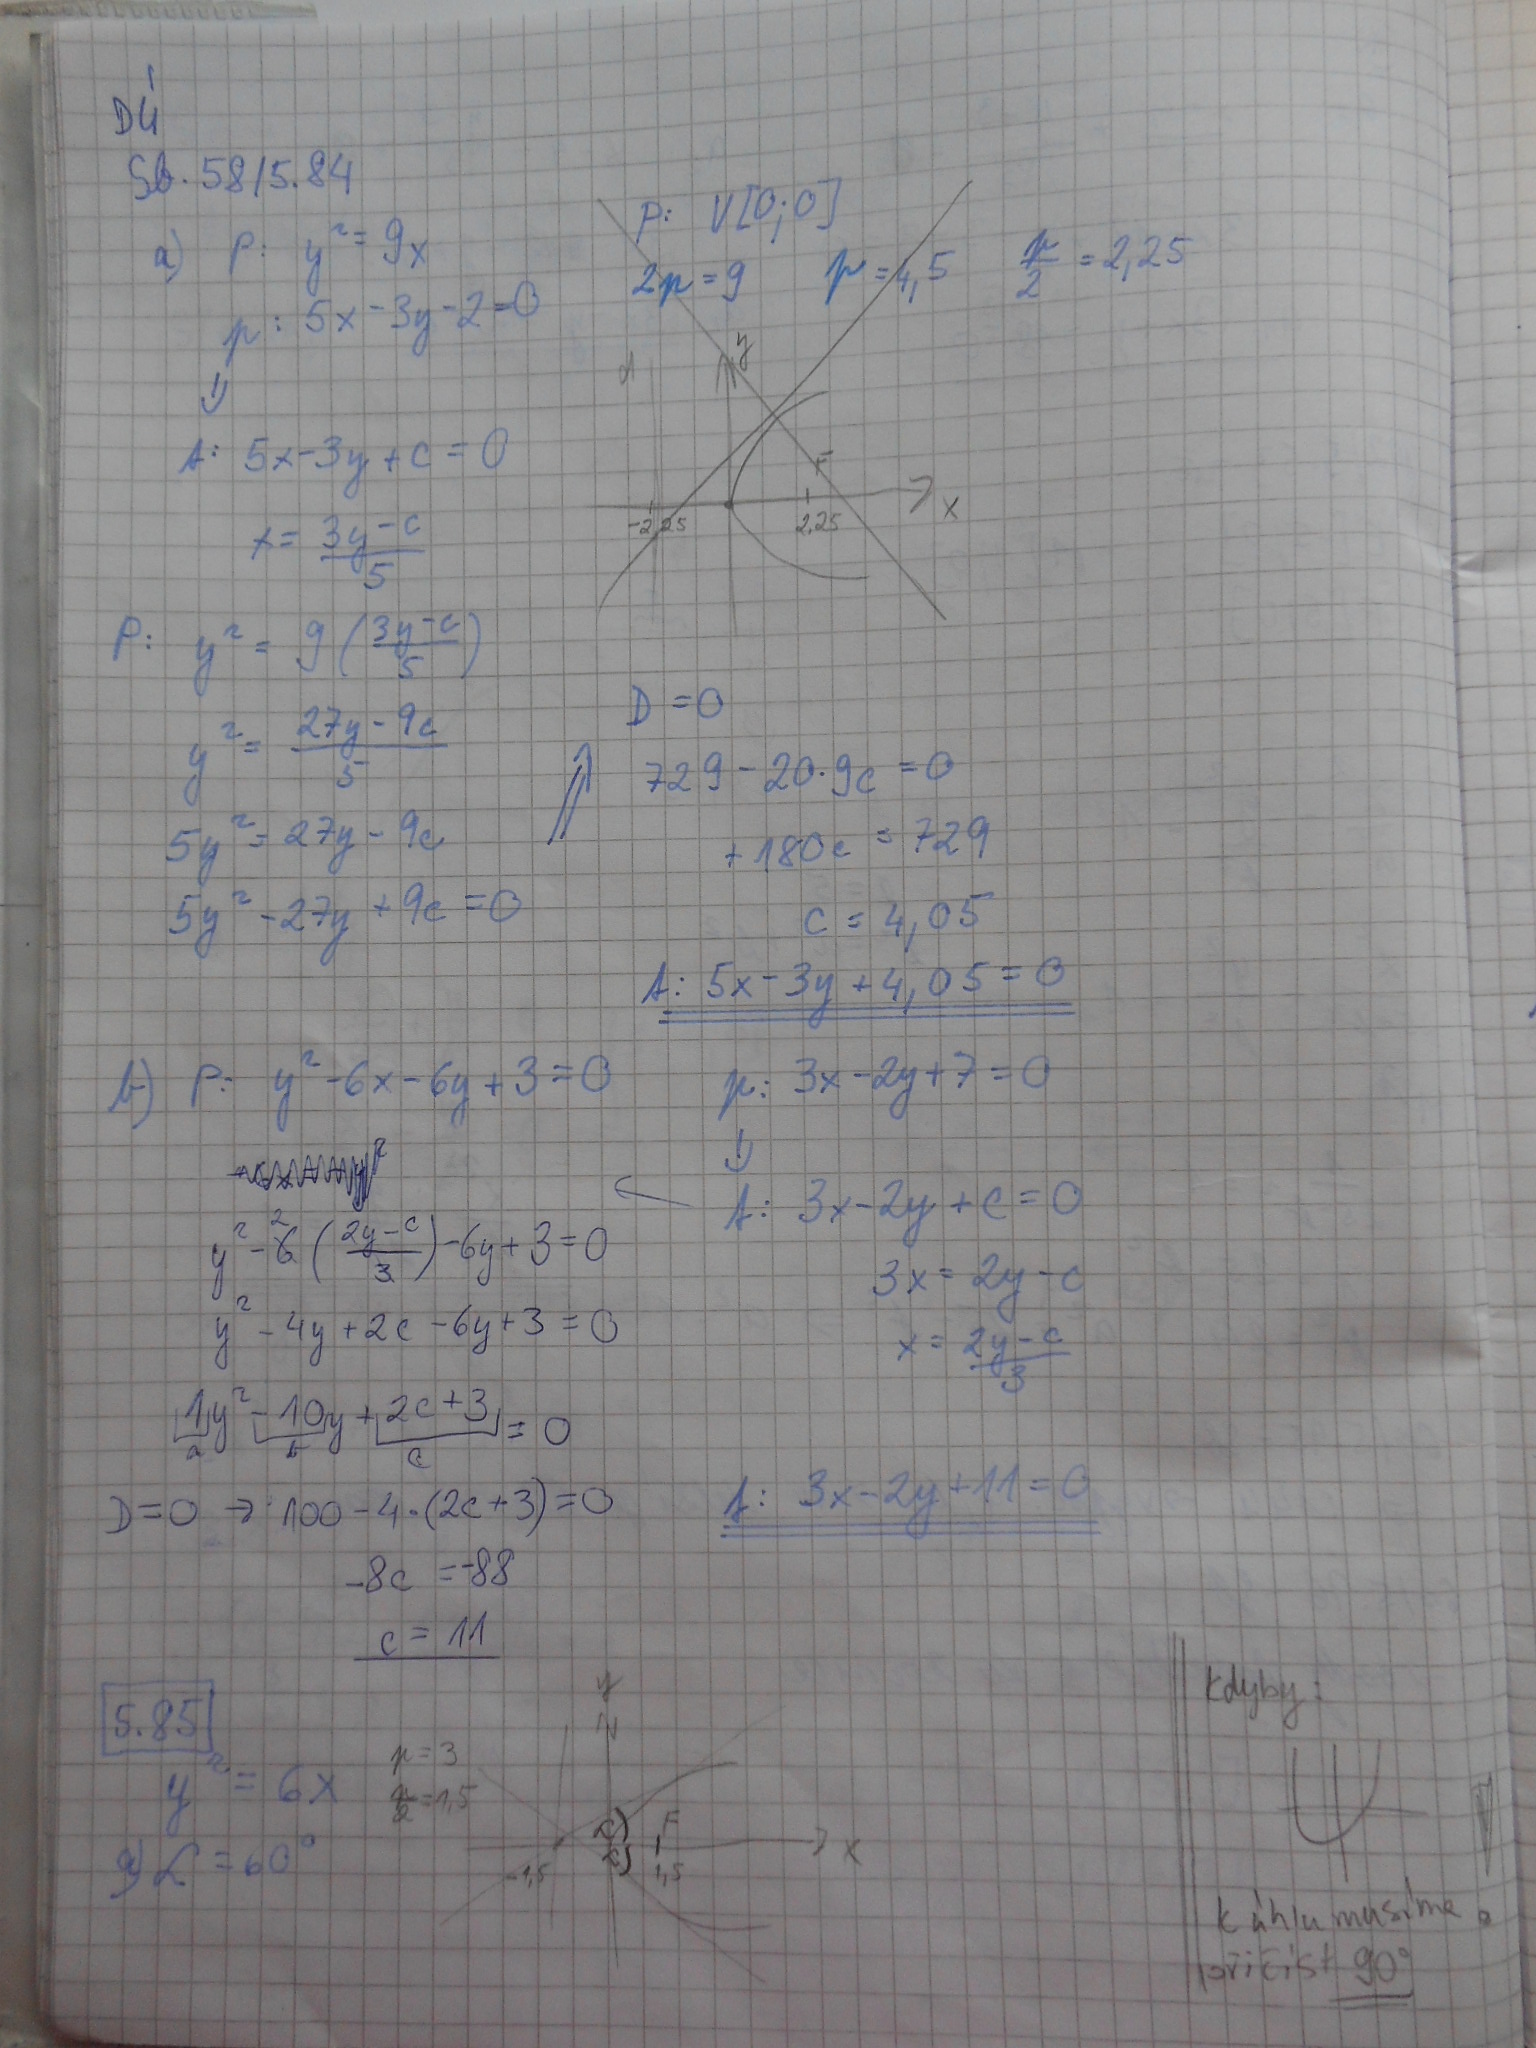 DÚ
Sb. 58/5.84
a) P: y² = 9x
p: 5x - 3y - 2 = 0
⇓
t: 5x - 3y + c = 0
x = (3y - c)/5
P: y² = 9 ((3y - c)/5)
y² = (27y - 9c)/5
5y² = 27y - 9c
5y² - 27y + 9c = 0
P: V[0;0]
2p = 9 p = 4,5 p/2 = 2,25
d y
F
-2,25 2,25 x
D = 0
729 - 20·9c = 0
+180c = 729
c = 4,05
t: 5x - 3y + 4,05 = 0
b) P: y² - 6x - 6y + 3 = 0 p: 3x - 2y + 7 = 0
⇓
t: 3x - 2y + c = 0
3x = 2y - c
x = (2y - c)/3
y² - 6² ((2y - c)/3) - 6y + 3 = 0
y² - 4y + 2c - 6y + 3 = 0
1y² - 10y + 2c + 3 = 0
a b c
D = 0 → 100 - 4·(2c + 3) = 0
-8c = -88
c = 11
t: 3x - 2y + 11 = 0
5.85
y² = 6x
a) α = 60°
p = 3
p/2 = 1,5
y
F
-1,5 1,5 x
Kdyby:
k úhlu musíme
přičíst 90°